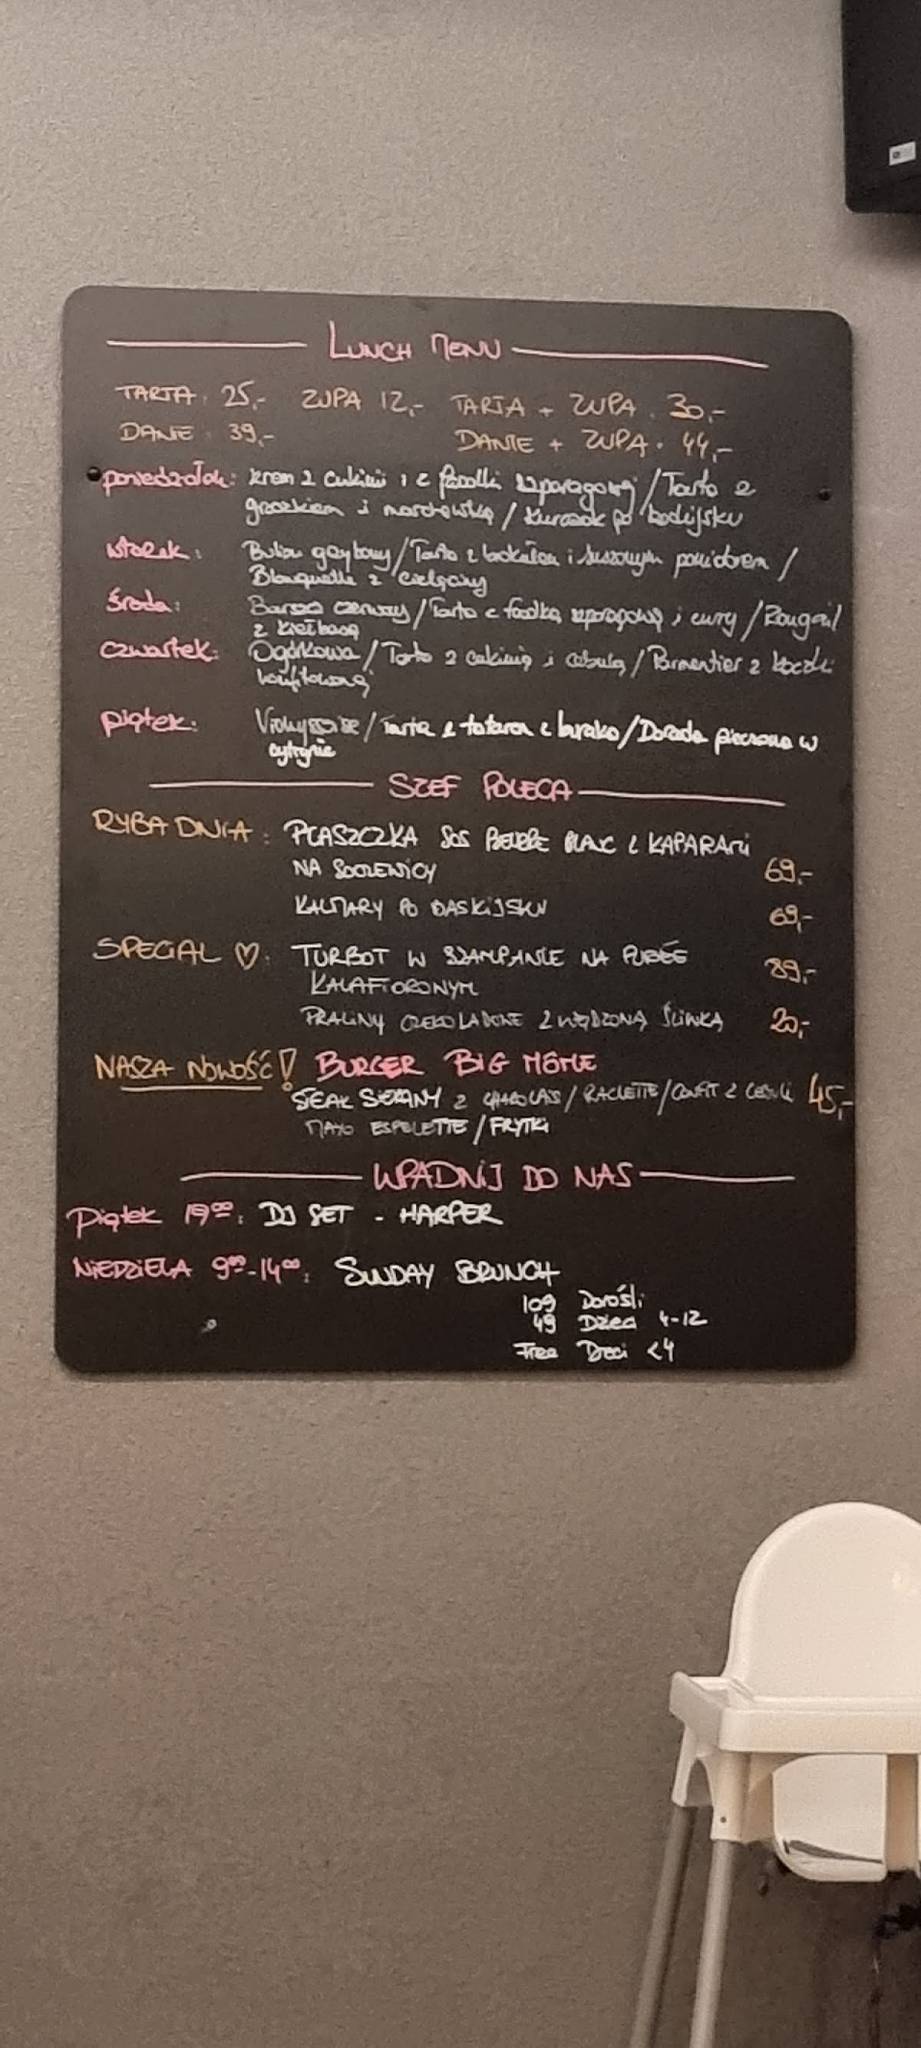 LUNCH MENU
TARTA: 25,- ZUPA 12,- TARTA + ZUPA: 30,-
DANIE: 39,- DANIE + ZUPA: 44,-
poniedziałek: krem z cukinii i z fasolki szparagowej / Tarta z
groszkiem i marchewką / Kurczak po baskijsku
wtorek: Bulion grzybowy / Tarta z i suszonym pomidorem /
Blanquette z cielęciny
środa: Barszcz czerwony / Tarta z fasolką szparagową i curry / Rougail
z kiełbasą
czwartek: Ogórkowa / Tarta z cukinią i cebulą / Parmentier z kaczki
konfitowanej
piątek: Vichyssoise / Tarta z tatara z buraka / Dorada pieczona w
cytrynie
SZEF POLECA
RYBA DNIA: PŁASZCZKA SOS BEURRE BLANC Z KAPARAMI
NA SOCZEWICY 69,-
KALMARY PO BASKIJSKU 69,-
SPECIAL ♡: TURBOT W SZAMPANIE NA PURÉE 89,-
KALAFIOROWYM
PRALINY CZEKOLADOWE Z WĘDZONĄ ŚLIWKĄ 20,-
NASZA NOWOŚĆ! BURGER BIG MÔME
SIEKANY Z CHAROLAIS / RACLETTE / CONFIT Z CEBULI 45,-
MAYO ESPELETTE / FRYTKI
WPADNIJ DO NAS
Piątek 19⁰⁰: DJ SET - HARPER
NIEDZIELA 9⁰⁰-14⁰⁰: SUNDAY BRUNCH
109 Dorośli
49 Dzieci 4-12
Free Dzieci <4